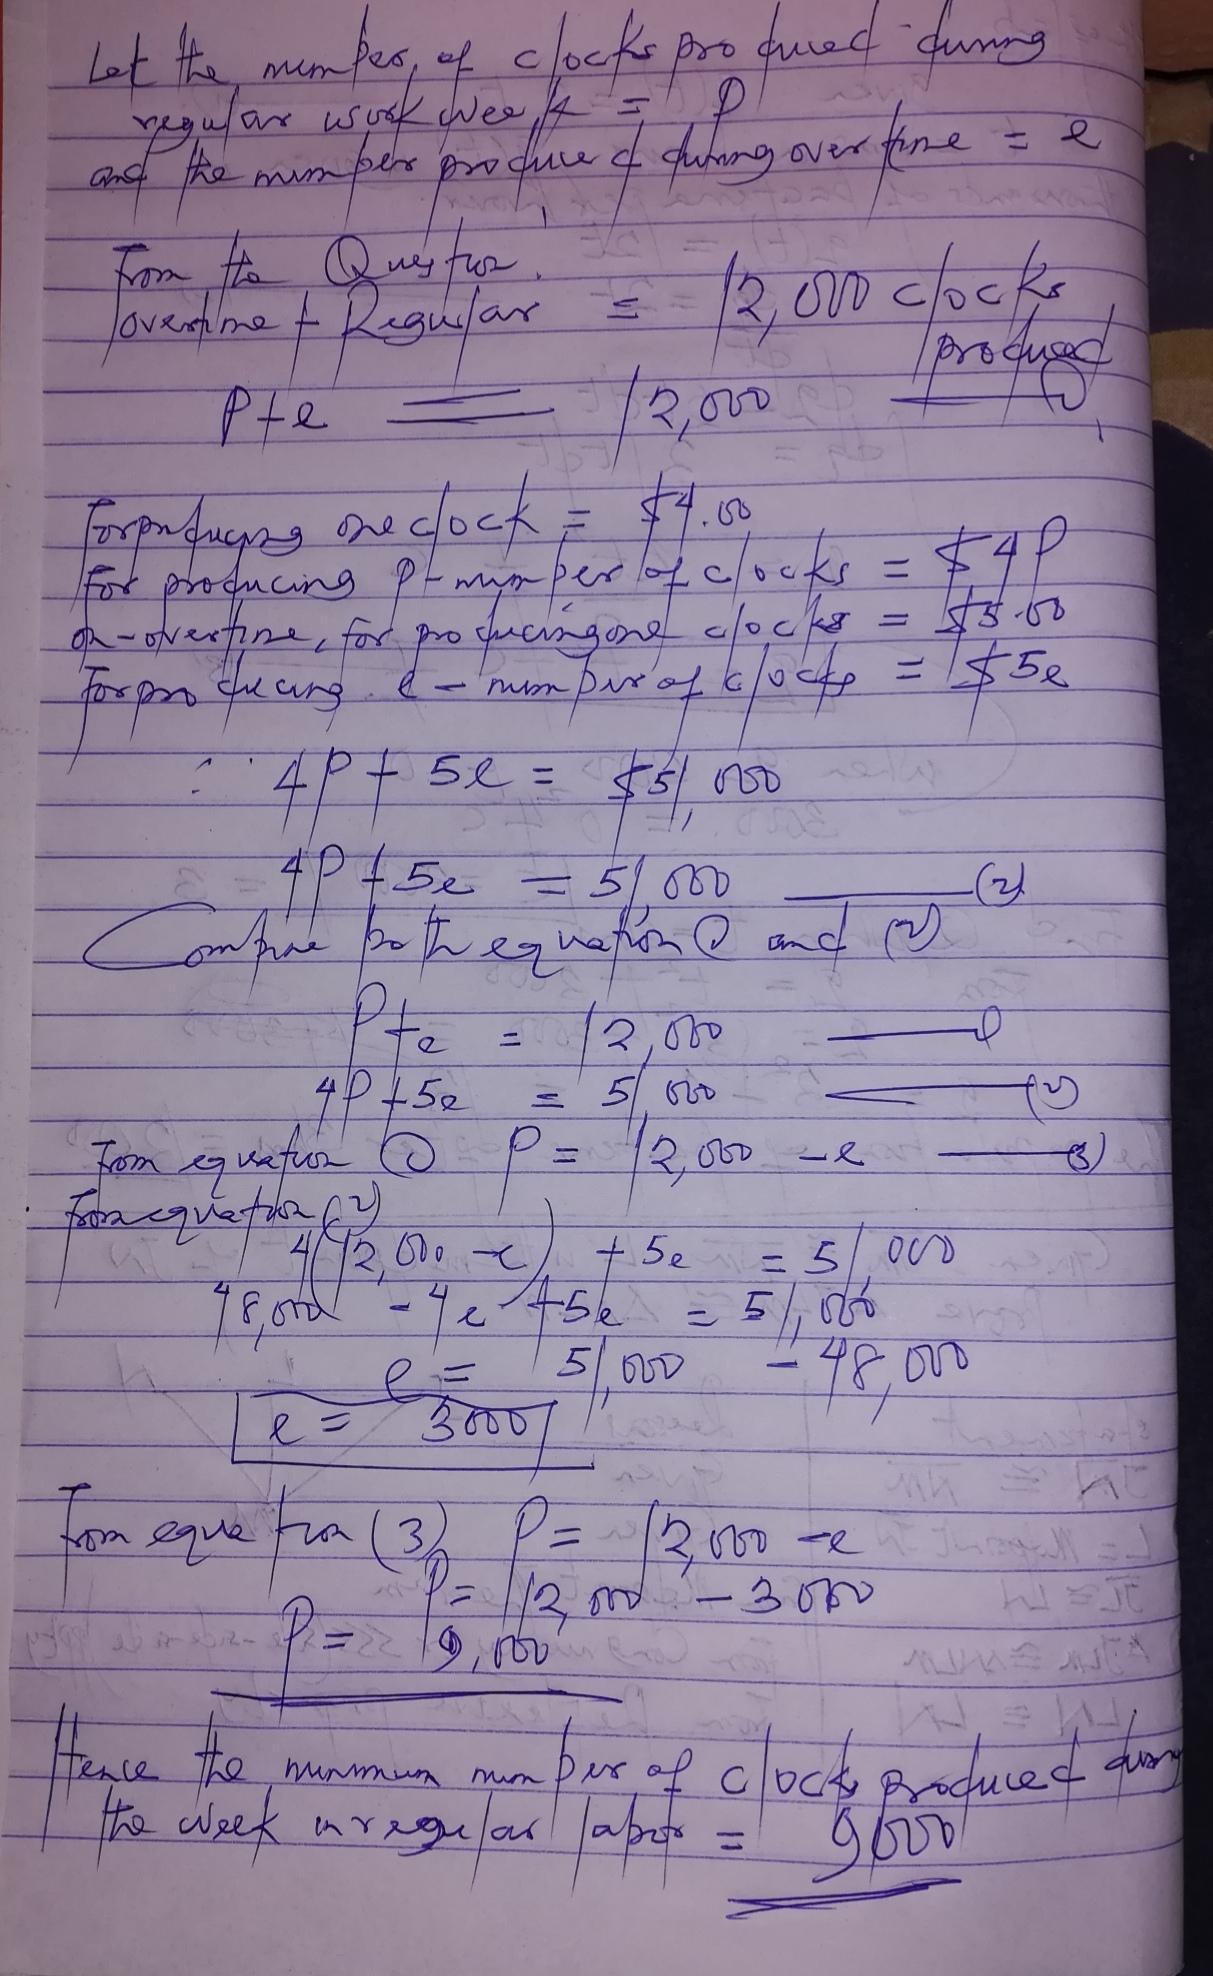 Let the number of clocks produced during
regular work week = P
and the number produced during overtime = e
From the Question.
overtime + Regular = 12,000 clocks
produced
P+e = 12,000 ——— ①
For producing one clock = $4.00
For producing P-number of clocks = $4P
on-overtime, for producing one clocks = $5.00
For producing e-number of clocks = $5e
∴ 4P + 5e = $51,000
4P + 5e = 51,000 ——— (2)
Combine both equation ① and (2)
P+e = 12,000 ——— ①
4P+5e = 51,000 ——— (2)
From equation ① P = 12,000 - e ——— (3)
From equation (2)
4(12,000 - e) + 5e = 51,000
48,000 - 4e + 5e = 51,000
e = 51,000 - 48,000
e = 3000
From equation (3) P = 12,000 - e
P = 12,000 - 3000
P = 9,000
Hence the minimum number of clocks produced during
the week in regular labor = 9000